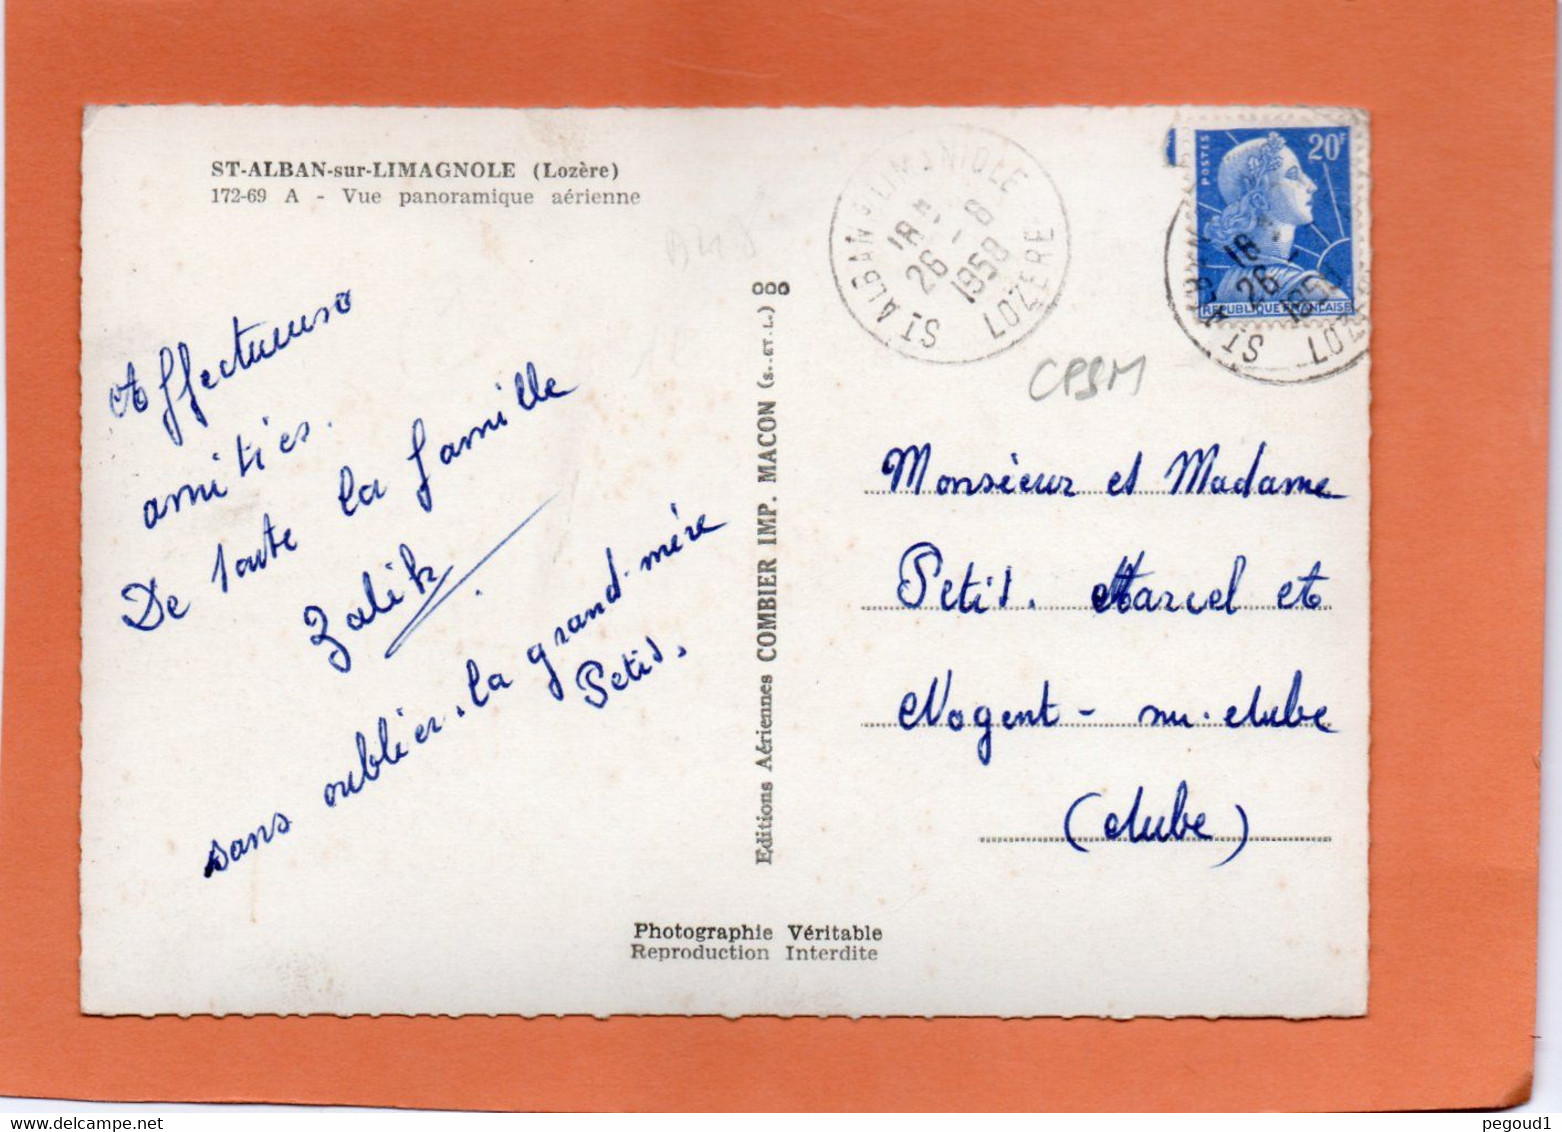 ST-ALBAN-sur-LIMAGNOLE (Lozère)
172-69 A - Vue panoramique aérienne
Affectueuses
amitiés.
De toute la famille
Zalik
sans oublier la grand-mère
Petit.
Editions Aériennes COMBIER IMP. MACON (S.-ET-L.)
Photographie Véritable
Reproduction Interdite
ST ALBAN S LIMAGNOLE
18 H
26 - 8
1958
LOZERE
POSTES
20F
REPUBLIQUE FRANÇAISE
CPSM
Monsieur et Madame
Petit. Marcel et
Nogent - sur - Aube
(Aube)
pegoud1